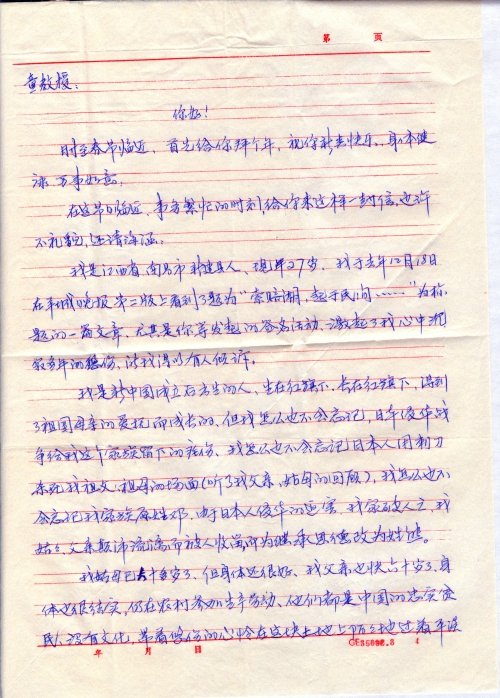 第 页
童教授：
你好！
时至春节临近，首先给你拜个年，祝你新春快乐、身体健
康、万事如意。
在这节日临近，事务繁忙的时刻，给你来这样一封信，也许
不礼貌，还请海涵。
我是江西省南昌市新建县人，现年27岁，我于去年12月18日
在羊城晚报第二版上看到了题为“索赔潮，起于民间……”为标
题的一篇文章，尤其是你等发起的签名活动，激起了我心中积
多年的隐伤，使我得以有人倾诉。
我是新中国成立后出生的人，生在红旗下，长在红旗下，得到
了祖国母亲的爱抚而成长的，但我怎么也不会忘记，日军侵华战
争给我这个家族留下的疮伤，我怎么也不会忘记日本人用刺刀
杀死我祖父、祖母的场面（听了我父亲、姑母的回顾），我怎么也不
会忘记我家族原姓邓，由于日本人侵华的迫害，我家破人亡，我
姑父亲颠沛流离而被人收留而为继承恩德改为姓熊。
我姑母已六十多岁了，但身体还很好、我父亲也快六十岁了，身
体也很结实，仍在农村参加生产劳动，他们都是中国的忠实农
民，没有文化，带着隐伤的心怜在这块土地上过着平淡
年 月 日